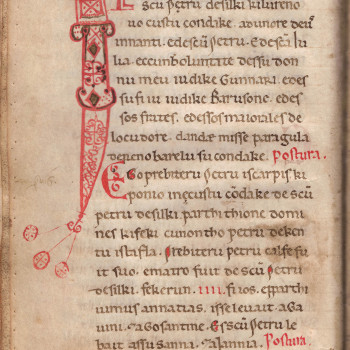 scũ petru desilki kilureno
uo custu condake. adunore deũ
innanti. edescũ petru. edesca Iu
lia. eccunboluntate dessu don
nu meu iudike Gunnari. edes
su fiiu iudike Barusone. edes
sos frates. edessos maiorales de
locudore. dandæ misse paragula
barelu su condake. Postura.
Ego petru iscarpis ki
ponio cõdake de scũ
petru desilki parthithione domi
nes kifeki cunontho petru deken
tu islafla. Prebiteru petru calfe fu
it suo. ematro fuit de scũ Petru
desilki. fekerun .IIII. fiios. epparthi
uimus annatias. isse leuait. aGa
uini. eaGosantine. Esscũ petru le
bait assusanna. Postura.